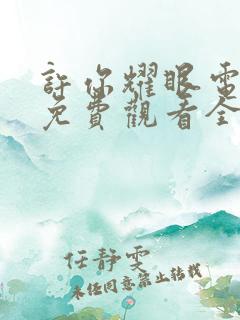 許你耀眼電
免費觀看全
任靜雯
未经同意禁止转载